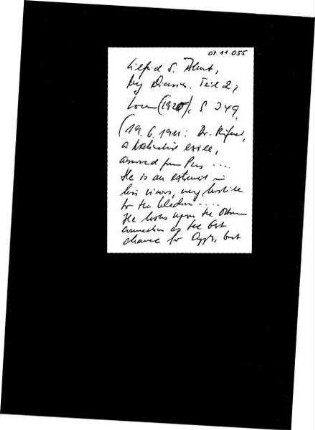 07.11.055
Wilfrid S. Blunt,
My Diaries. Teil 2,
London (1920), S. 249.
(19. 6. 1911: Dr. Rifaat,
a Nationalist exile,
arrived from Paris ....
He is an extremist in
his views, very hostile
to the Khedive ....
He looks upon the Ottoman
connection as the best
chance for Egypt, but